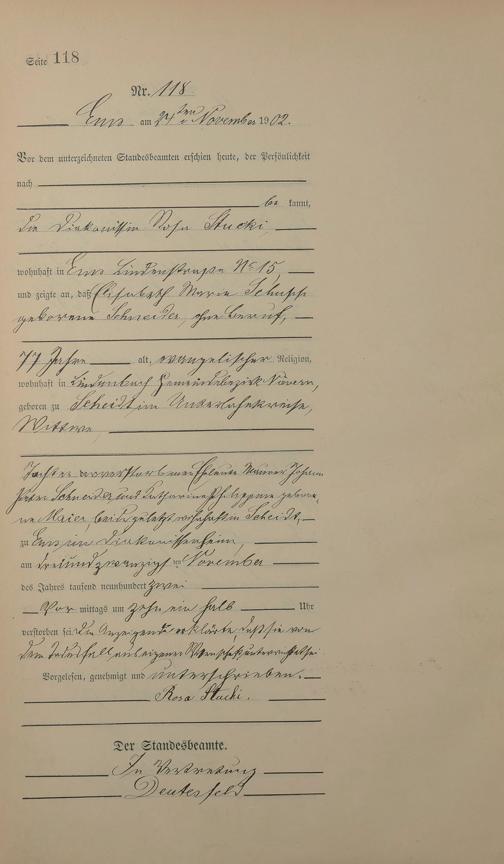 Seite 118
Nr. 118
Ems am 24ten November 1902.
Vor dem unterzeichneten Standesbeamten erschien heute, der Persönlichkeit
nach
be kannt,
die Diakonissin Rosa Stucki,
wohnhaft in Ems Lindenstraße No 15,
und zeigte an, daß Elisabeth Marie
geborene Schneider, ohne Beruf,
77 Jahre alt, evangelischer Religion,
wohnhaft in Lindenbach Gemeindebezirk Nievern,
geboren zu Scheidt im Unterlahnkreise,
Wittwe,
Tochter der verstorbenen Eheleute Maurer Johann
Peter Schneider und Katharine Philippine gebore-
ne Maier, beide zuletzt wohnhaft in Scheidt,
zu Ems im Diakonissenheim,
am dreiundzwanzigsten November
des Jahres tausend neunhundert zwei
Vor mittags um zehn ein halb Uhr
verstorben sei. Die Anzeigende erklärte, daß sie von
dem Todesfall aus eigener Wissenschaft unterrichtet sei.
Vorgelesen, genehmigt und unterschrieben.
Rosa Stucki.
Der Standesbeamte.
In Vertretung